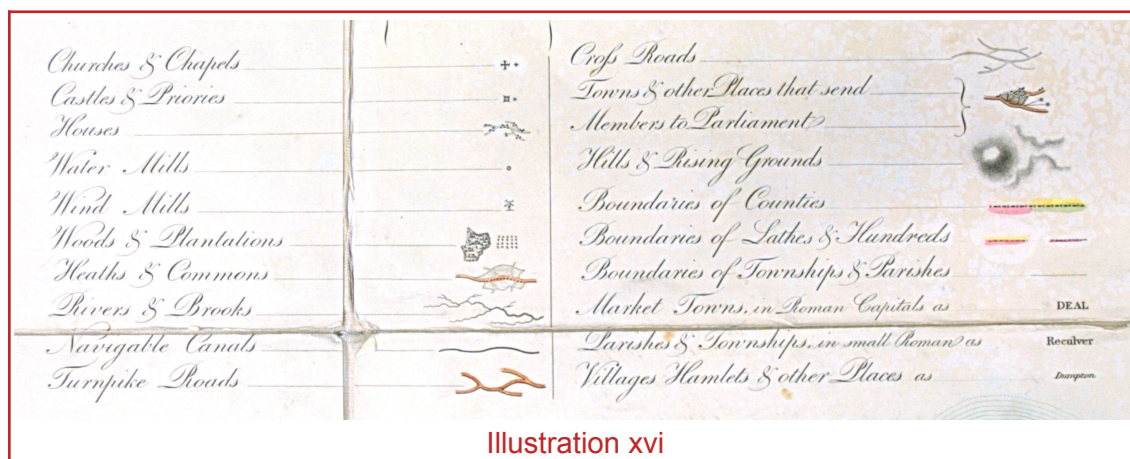 Churches & Chapels
Castles & Priories
Houses
Water Mills
Wind Mills
Woods & Plantations
Heaths & Commons
Rivers & Brooks
Navigable Canals
Turnpike Roads
Croſs Roads
Towns & other Places that send
Members to Parliament
Hills & Rising Grounds
Boundaries of Counties
Boundaries of Lathes & Hundreds
Boundaries of Townships & Parishes
Market Towns, in Roman Capitals as DEAL
Parishes & Townships, in small Roman as Reculver
Villages Hamlets & other Places as Dumpton
Illustration xvi